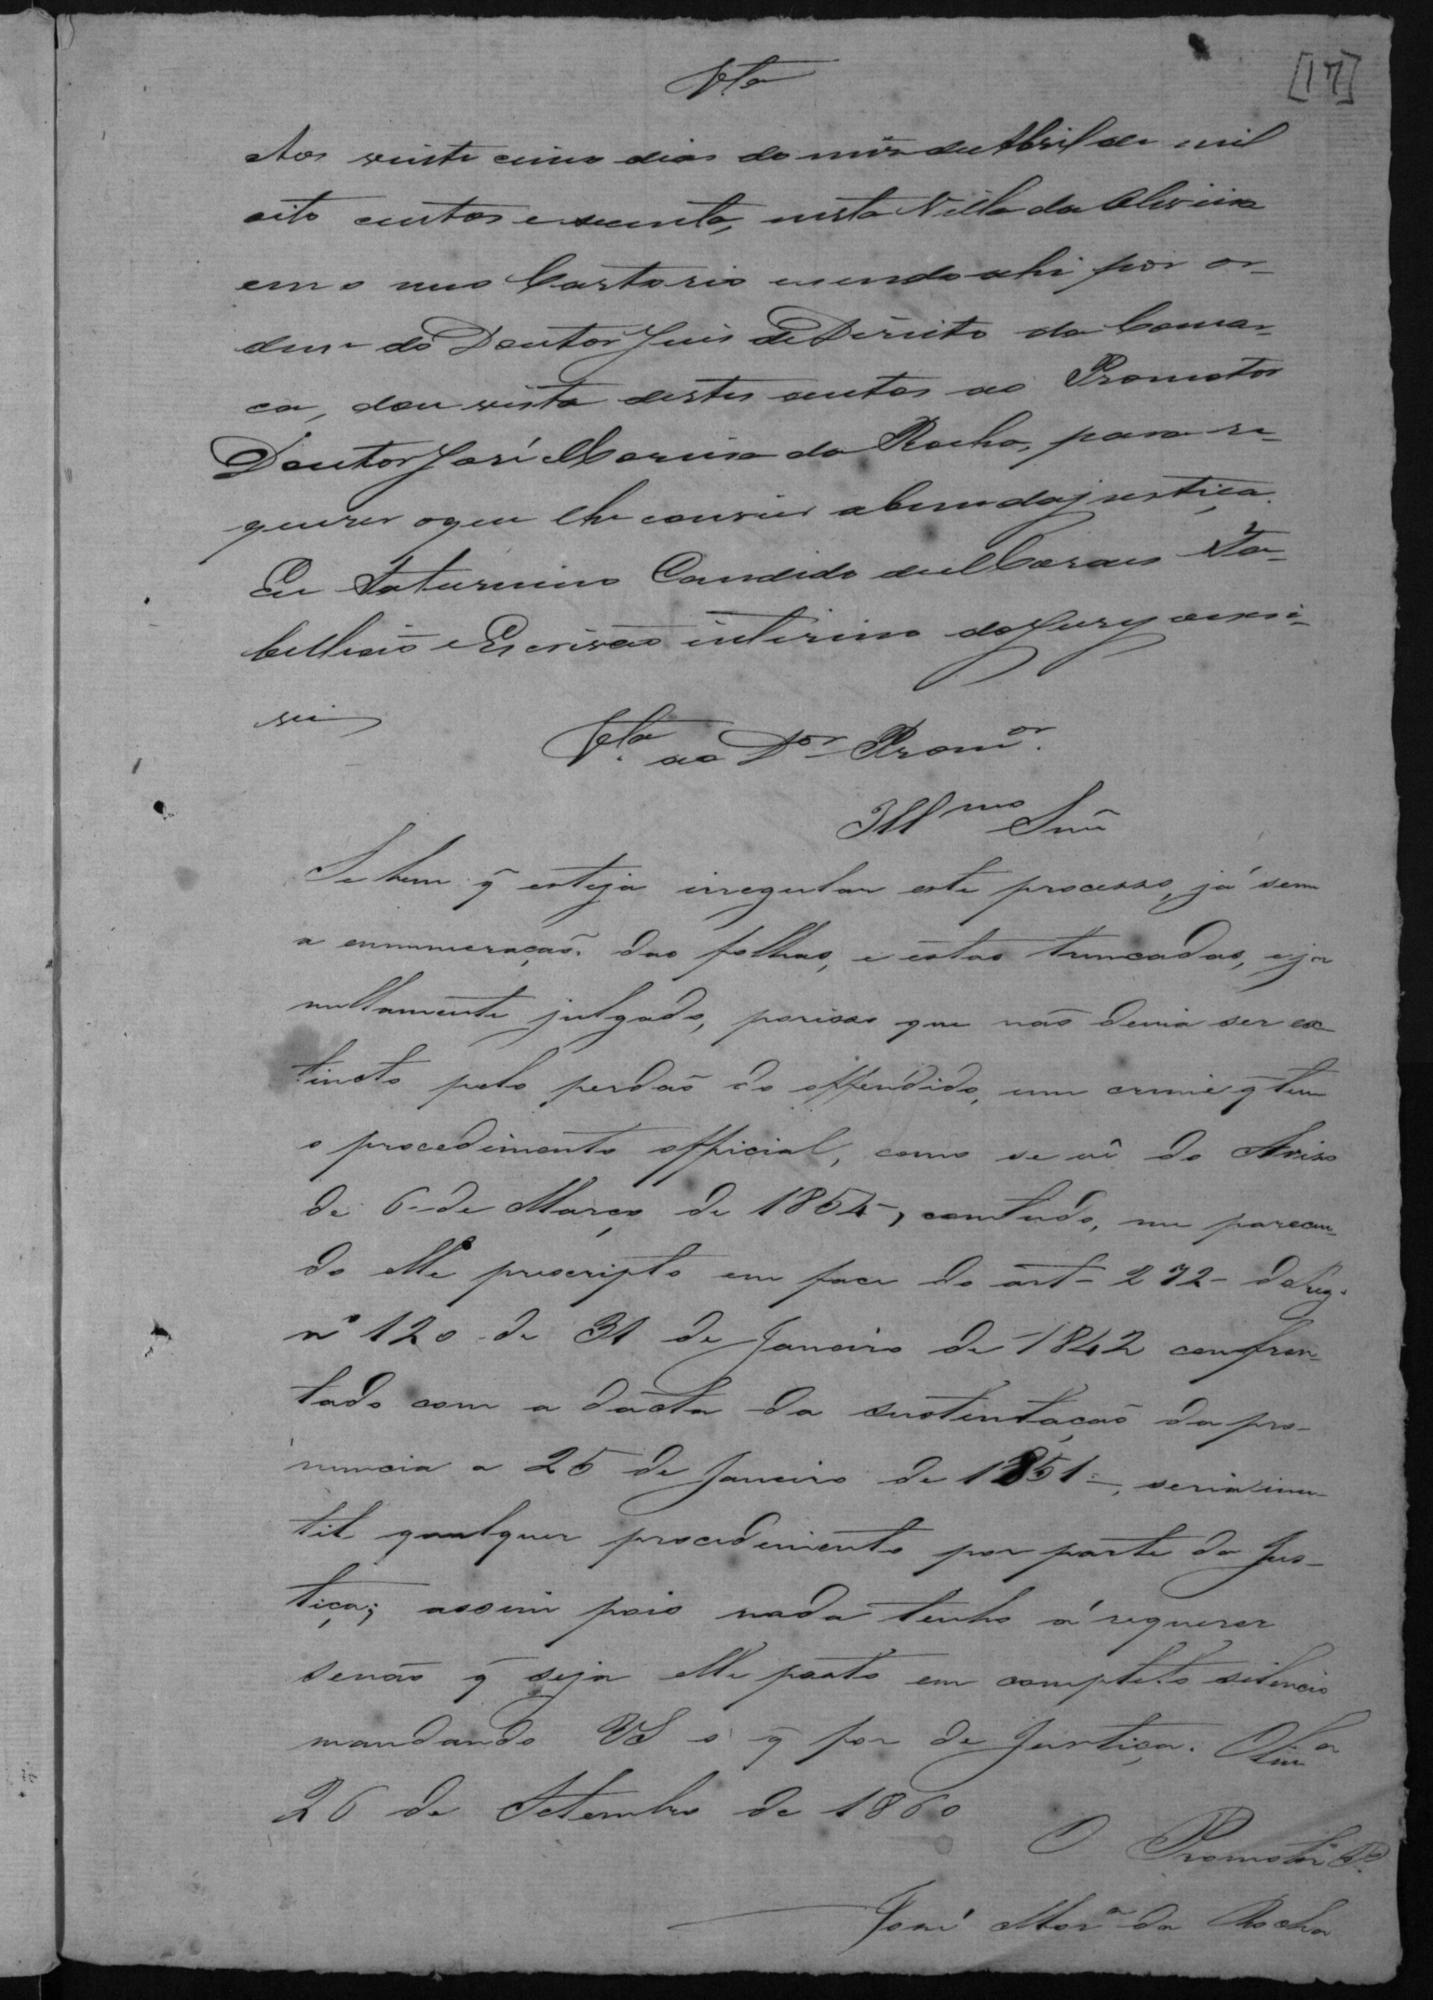 [17]
Vta
Aos vinte cinco dias do mes de Abril de mil
oito centos e secenta, nesta Villa da Oliveira
em o meu Cartorio e sendo ahi por or-
dem do Doutor Juis de Direito da Comar-
ca, dou vista destes autos ao Promotor
Doutor José Moreira da Rocha, para re-
querer o que lhe convier a bem da justiça.
Eu Saturnino Candido de Moraes Ta-
bellião e Escrivão interino do Jury o escre-
vi
Vta ao Dor Promor.
Illmo Snr
Se bem q̃ esteja irregular este processo, já sem
a ennumeração das folhas, e estas truncadas, e ja
nullamente julgado, porisso que não devia ser ex-
tincto pelo perdão do offendido, um crime q̃ tem
o procedimento official, como se vê do Aviso
de 6 de Março de 1854, comtudo, me parecen-
do elle prescripto em face do art- 272- do Reg.
nº 120 de 31 de Janeiro de 1842 confron-
tado com a dacta da sustentação da pro-
nuncia a 25 de Janeiro de 1851, seria inu-
til qualquer procedimento por parte da Jus-
tiça; assim pois nada tenho á requerer
senão q̃ seja elle posto em completo silencio
mandando VS o q̃ for de Justiça. Olivra
26 de Setembro de 1860
O Promotor P.
José Morª da Rocha